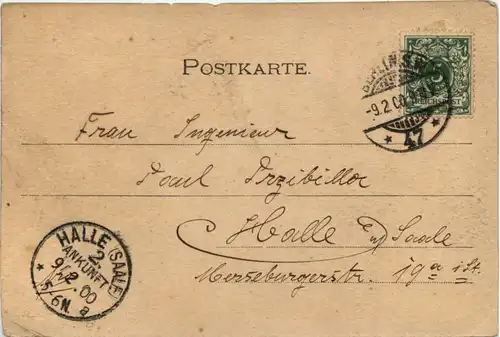 POSTKARTE.
BERLIN S.W.
-9.2.00
* 47 *
REICHSPOST
Frau Ingenieur
Paul Przibilla
Halle a/ Saale
Merseburgerstr. 19a
HALLE (SAALE)
2
ANKUNFT
9/2.00
5-6N.
a